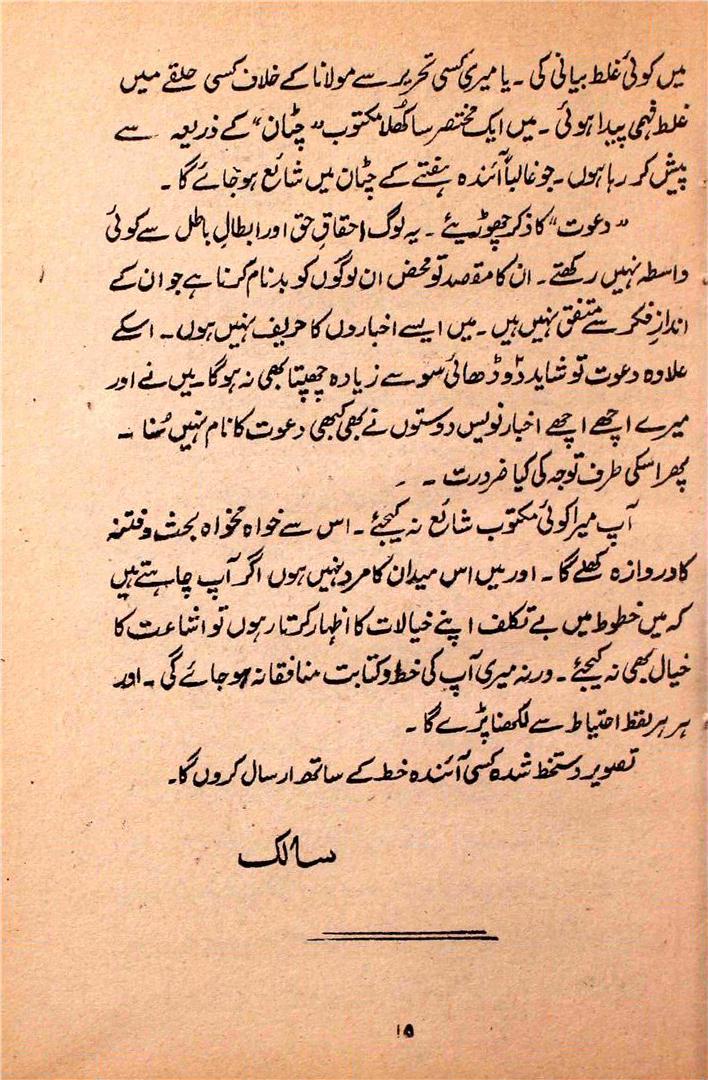 میں کوئی غلط بیانی کی ۔ یا میری کسی تحریر سے مولانا کے خلاف کسی حلقے میں
غلط فہمی پیدا ہوئی ۔ میں ایک مختصر سا کھلا مکتوب "چٹان" کے ذریعہ سے
پیش کر رہا ہوں ۔ جو غالباً آئندہ ہفتے کے چٹان میں شائع ہو جائے گا ۔
"دعوت" کا ذکر چھوڑیئے ۔ یہ لوگ احقاقِ حق اور ابطالِ باطل سے کوئی
واسطہ نہیں رکھتے ۔ ان کا مقصد تو محض ان لوگوں کو بدنام کرنا ہے جو ان کے
اندازِ فکر سے متفق نہیں ہیں ۔ میں ایسے اخباروں کا حریف نہیں ہوں ۔ اسکے
علاوہ دعوت تو شاید دو ڈھائی سو سے زیادہ چھپتا بھی نہ ہوگا ۔ میں نے اور
میرے اچھے اچھے اخبار نویس دوستوں نے بھی کبھی دعوت کا نام نہیں سُنا ۔
پھر اسکی طرف توجہ کی کیا ضرورت ۔
آپ میرا کوئی مکتوب شائع نہ کیجئے ۔ اس سے خواہ مخواہ بحث و فتنہ
کا دروازہ کھلے گا ۔ اور میں اس میدان کا مرد نہیں ہوں اگر آپ چاہتے ہیں
کہ میں خطوط میں بے تکلف اپنے خیالات کا اظہار کرتا رہوں تو اشاعت کا
خیال بھی نہ کیجئے ۔ ورنہ میری آپ کی خط و کتابت منافقانہ ہو جائے گی ۔ اور
ہر ہر لفظ احتیاط سے لکھنا پڑے گا ۔
تصویر دستخط شدہ کسی آئندہ خط کے ساتھ ارسال کروں گا ۔
سالک
۱۵